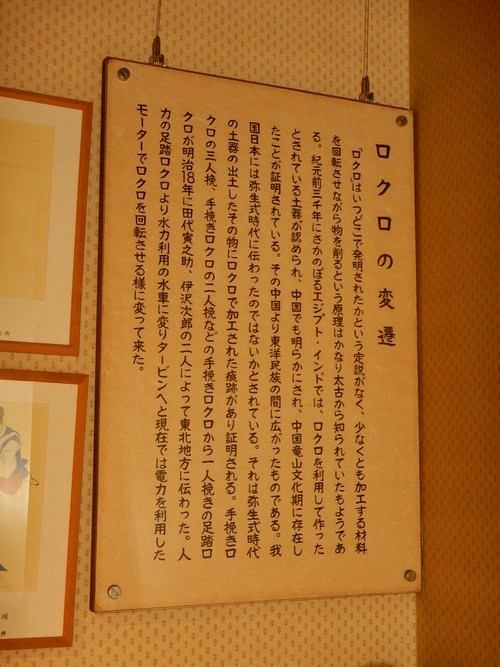 ロクロの変遷
「ロクロはいつどこで発明されたかという定説がなく、少なくとも加工する材料
を回転させながら物を削るという原理はかなり太古から知られていたもようであ
る。紀元前三千年にさかのぼるエジプト・インドでは、ロクロを利用して作った
とされている土器が認められ、中国でも明らかにされ、中国竜山文化期に存在し
たことが証明されている。その中国より東洋民族の間に広がったものである。我
国日本には弥生式時代に伝わったのではないかとされている。それは弥生式時代
の土器の出土したその物にロクロで加工された痕跡があり証明される。手挽きロ
クロの三人挽、手挽きロクロの二人挽などの手挽きロクロから一人挽きの足踏ロ
クロが明治18年に田代寅之助、伊沢次郎の二人によって東北地方に伝わった。人
力の足踏ロクロより水力利用の水車に変りタービンへと現在では電力を利用した
モーターでロクロを回転させる様に変って来た。